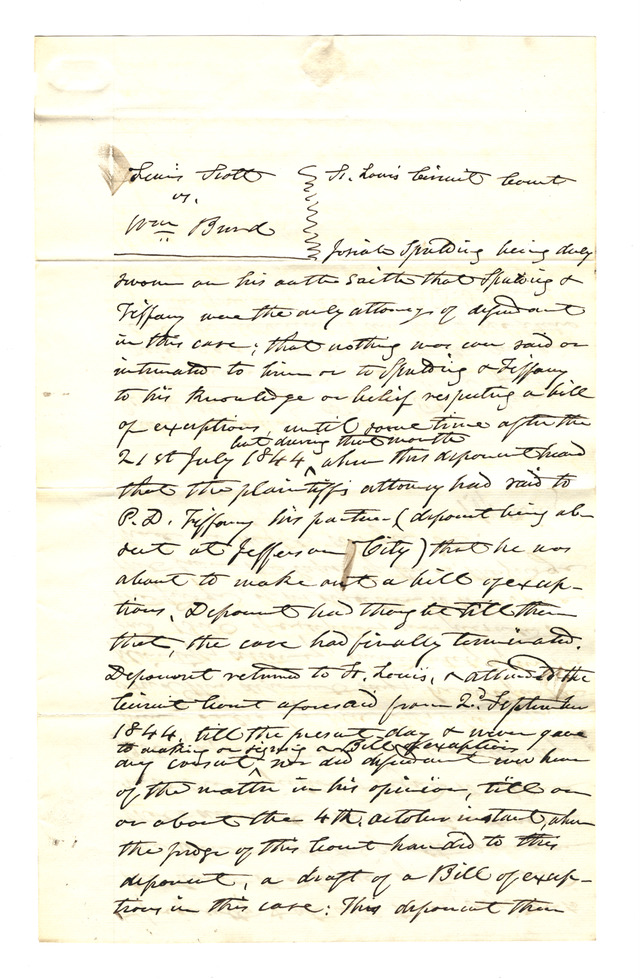 Lewis Scott St. Louis Circuit Court
vs.
Wm Burd
Josiah Spalding being duly
sworn on his oath saith that Spalding &
Tiffany were the only attorneys of defendant
in this case; that nothing was ever said or
intimated to him or to Spalding & Tiffany
to his knowledge or belief respecting a bill
of exceptions, until some time after the
but during that month
21st July 1844 when this deponent heard
that the plaintiff's attorney had said to
P. D. Tiffany his partner (deponent being ab-
sent at Jefferson City) that he was
about to make out a bill of excep-
tions. Deponent had thought till then
that, the case had finally terminated.
Deponent returned to St. Louis, & attended the
Circuit Court aforesaid from 2d. September
1844, till the present day & never gave
to making or signing a Bill of exceptions
any consent, nor did defendant ever hear
of the matter in his opinion, till on
or about the 4th. October instant, when
the judge of this Court handed to this
deponent, a draft of a Bill of excep-
tions in this case: This deponent then